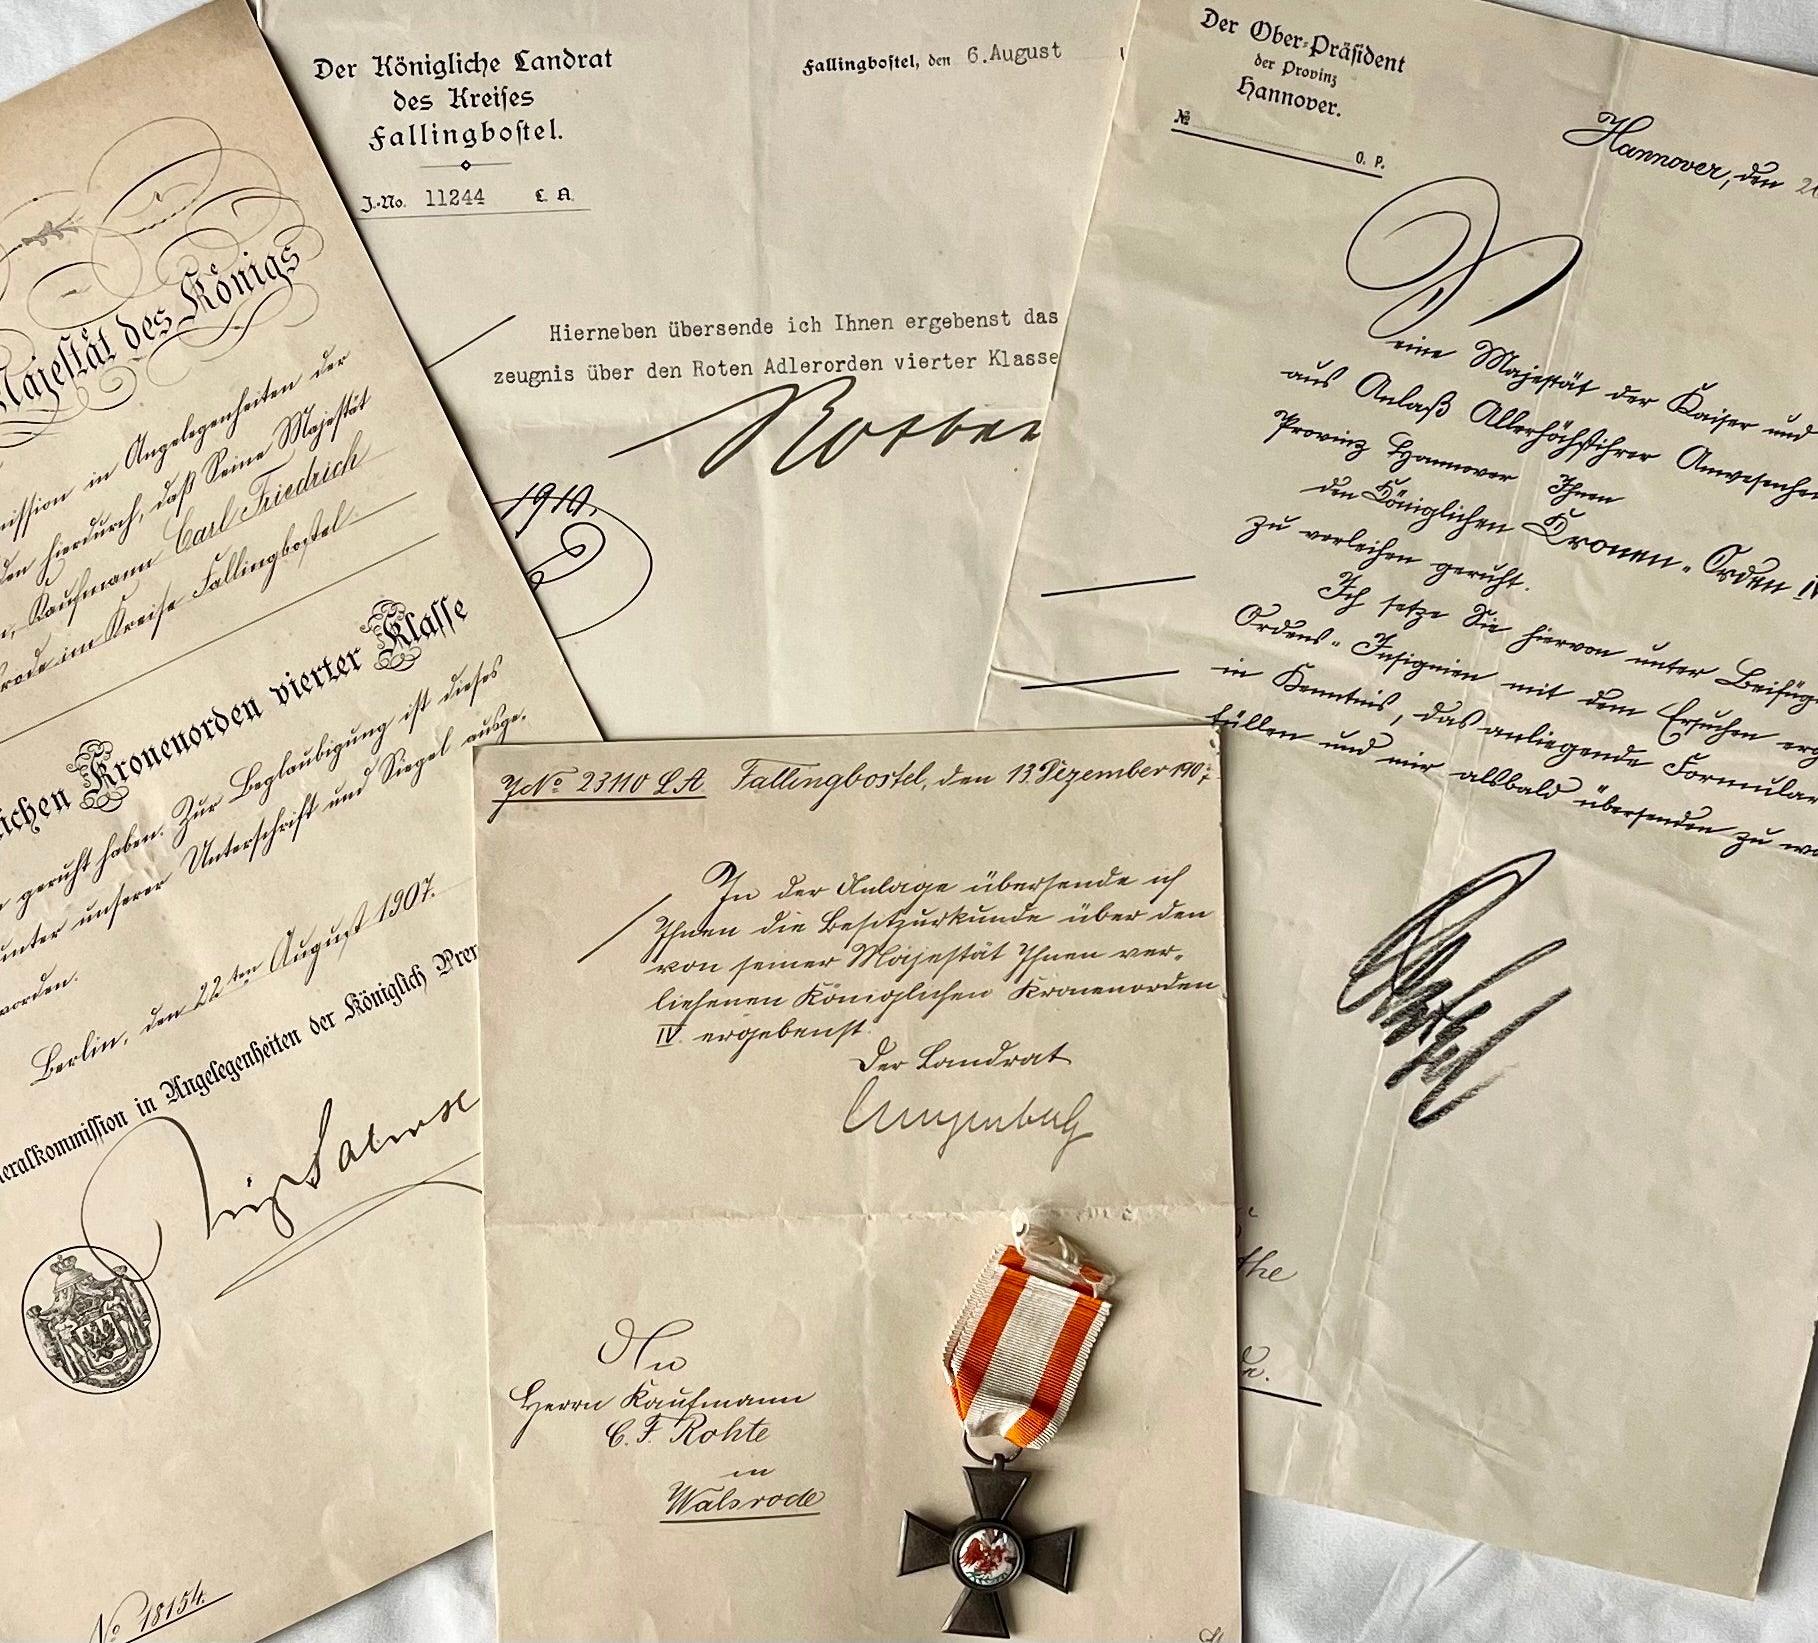 Majestät des Königs
in Angelegenheiten der
hierdurch, daß Seine Majestät
Kaufmann Carl Friedrich
im Kreise Fallingbostel
Kronenorden vierter Klasse
geruht haben. Zur Beglaubigung ist dieses
unter unserer Unterschrift und Siegel ausge-
worden.
Berlin, den 22ten August 1907.
in Angelegenheiten der Königlich
No 18154.
Der Königliche Landrat
des Kreises
Fallingbostel.
J.-No. 11244 L. A.
Fallingbostel, den 6.August
Hierneben übersende ich Ihnen ergebenst das
zeugnis über den Roten Adlerorden vierter Klasse
1910.
Der Ober-Präsident
der Provinz
Hannover.
№ O. P.
Hannover, den
Seine Majestät der Kaiser und
aus Anlaß Allerhöchstihrer
Provinz Hannover Ihnen
den Königlichen Kronen-Orden IV
zu verleihen geruht.
Ich setze Sie hiervon unter
Ordens-Insignien mit dem Ersuchen
in Kenntnis, das anliegende Formular
füllen und mir alsbald übersenden zu
JNo 23110 LA Fallingbostel, den 13. Dezember 1907
In der Anlage übersende ich
Ihnen die Besitzurkunde über den
von seiner Majestät Ihnen ver-
liehenen Königlichen Kronenorden
IV. ergebenst.
Der Landrat
An
Herrn Kaufmann
C. F. Rohte
in
Walsrode